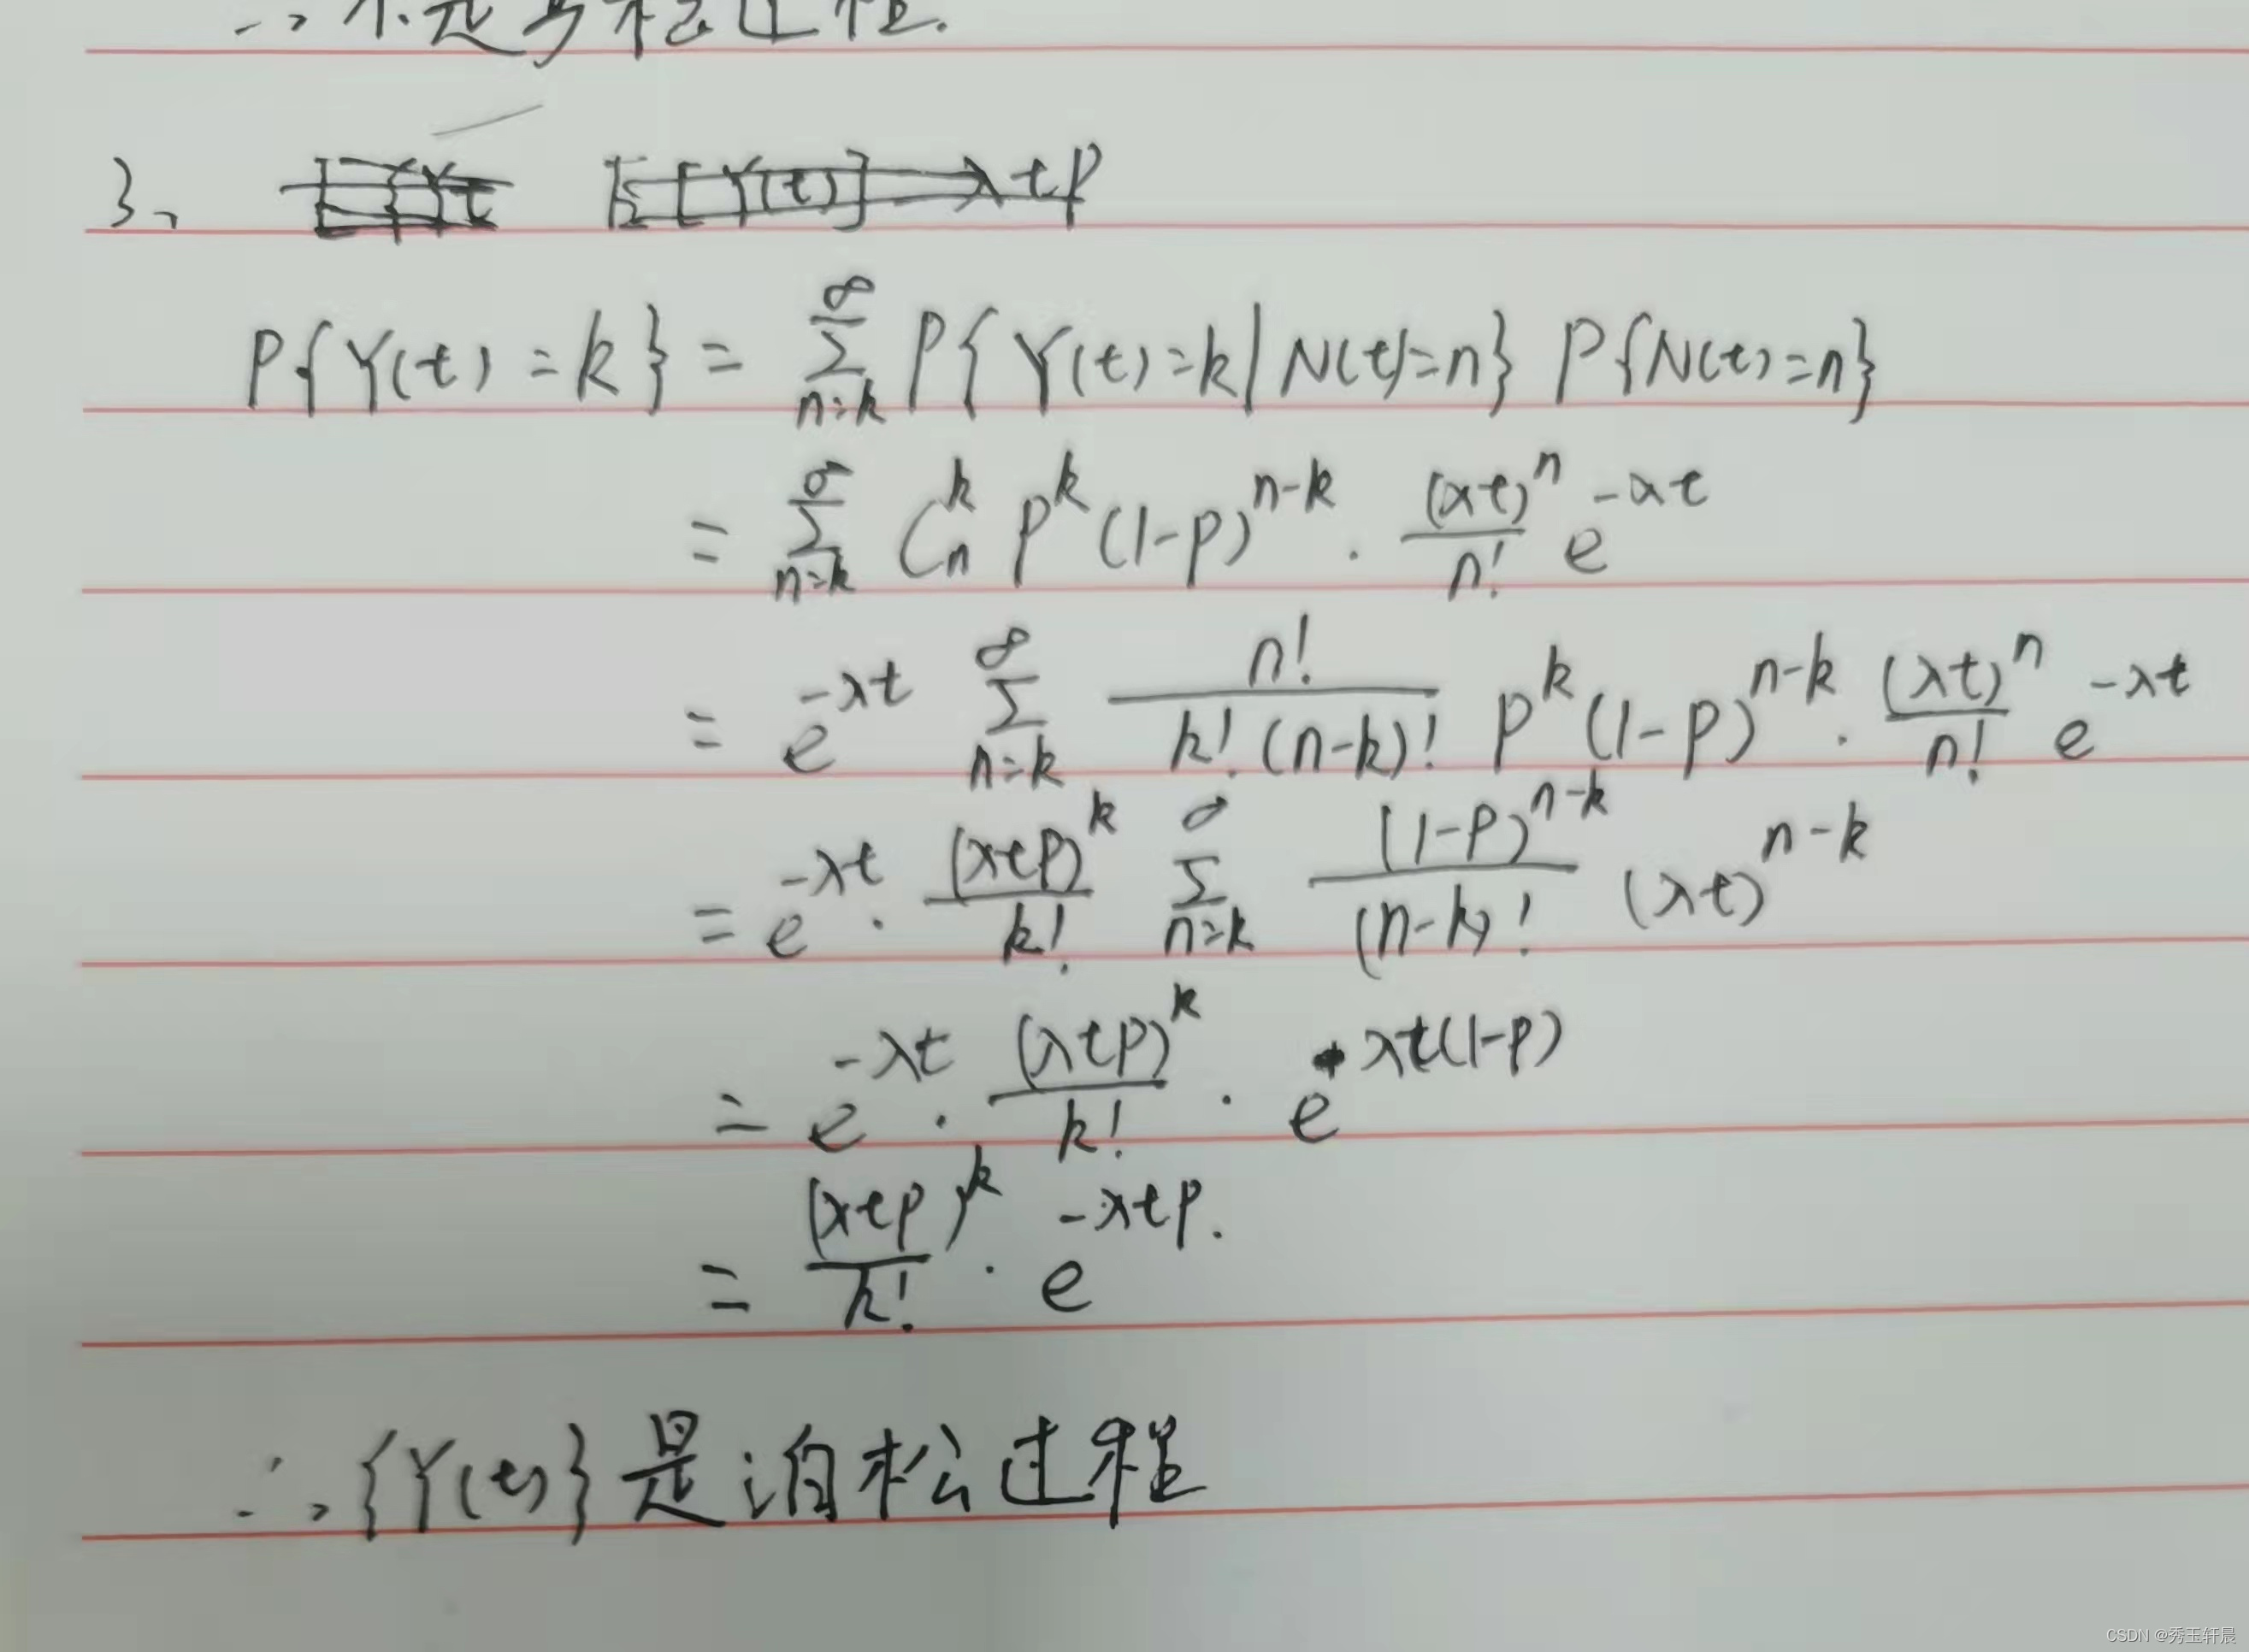 ∴ 不是泊松过程.
3、 E[Y(t)] = λtp
P{Y(t)=k} = \sum_{n=k}^{∞} P{Y(t)=k|N(t)=n} P{N(t)=n}
= \sum_{n=k}^{∞} C_n^k P^k (1-P)^{n-k} · \frac{(λt)^n}{n!} e^{-λt}
= e^{-λt} \sum_{n=k}^{∞} \frac{n!}{k!(n-k)!} P^k (1-P)^{n-k} · \frac{(λt)^n}{n!} e^{-λt}
= e^{-λt} · \frac{(λtp)^k}{k!} \sum_{n=k}^{∞} \frac{(1-P)^{n-k}}{(n-k)!} (λt)^{n-k}
= e^{-λt} · \frac{(λtp)^k}{k!} · e^{+λt(1-P)}
= \frac{(λtp)^k}{k!} · e^{-λtp}.
∴ {Y(t)} 是泊松过程
CSDN @秀玉轩晨